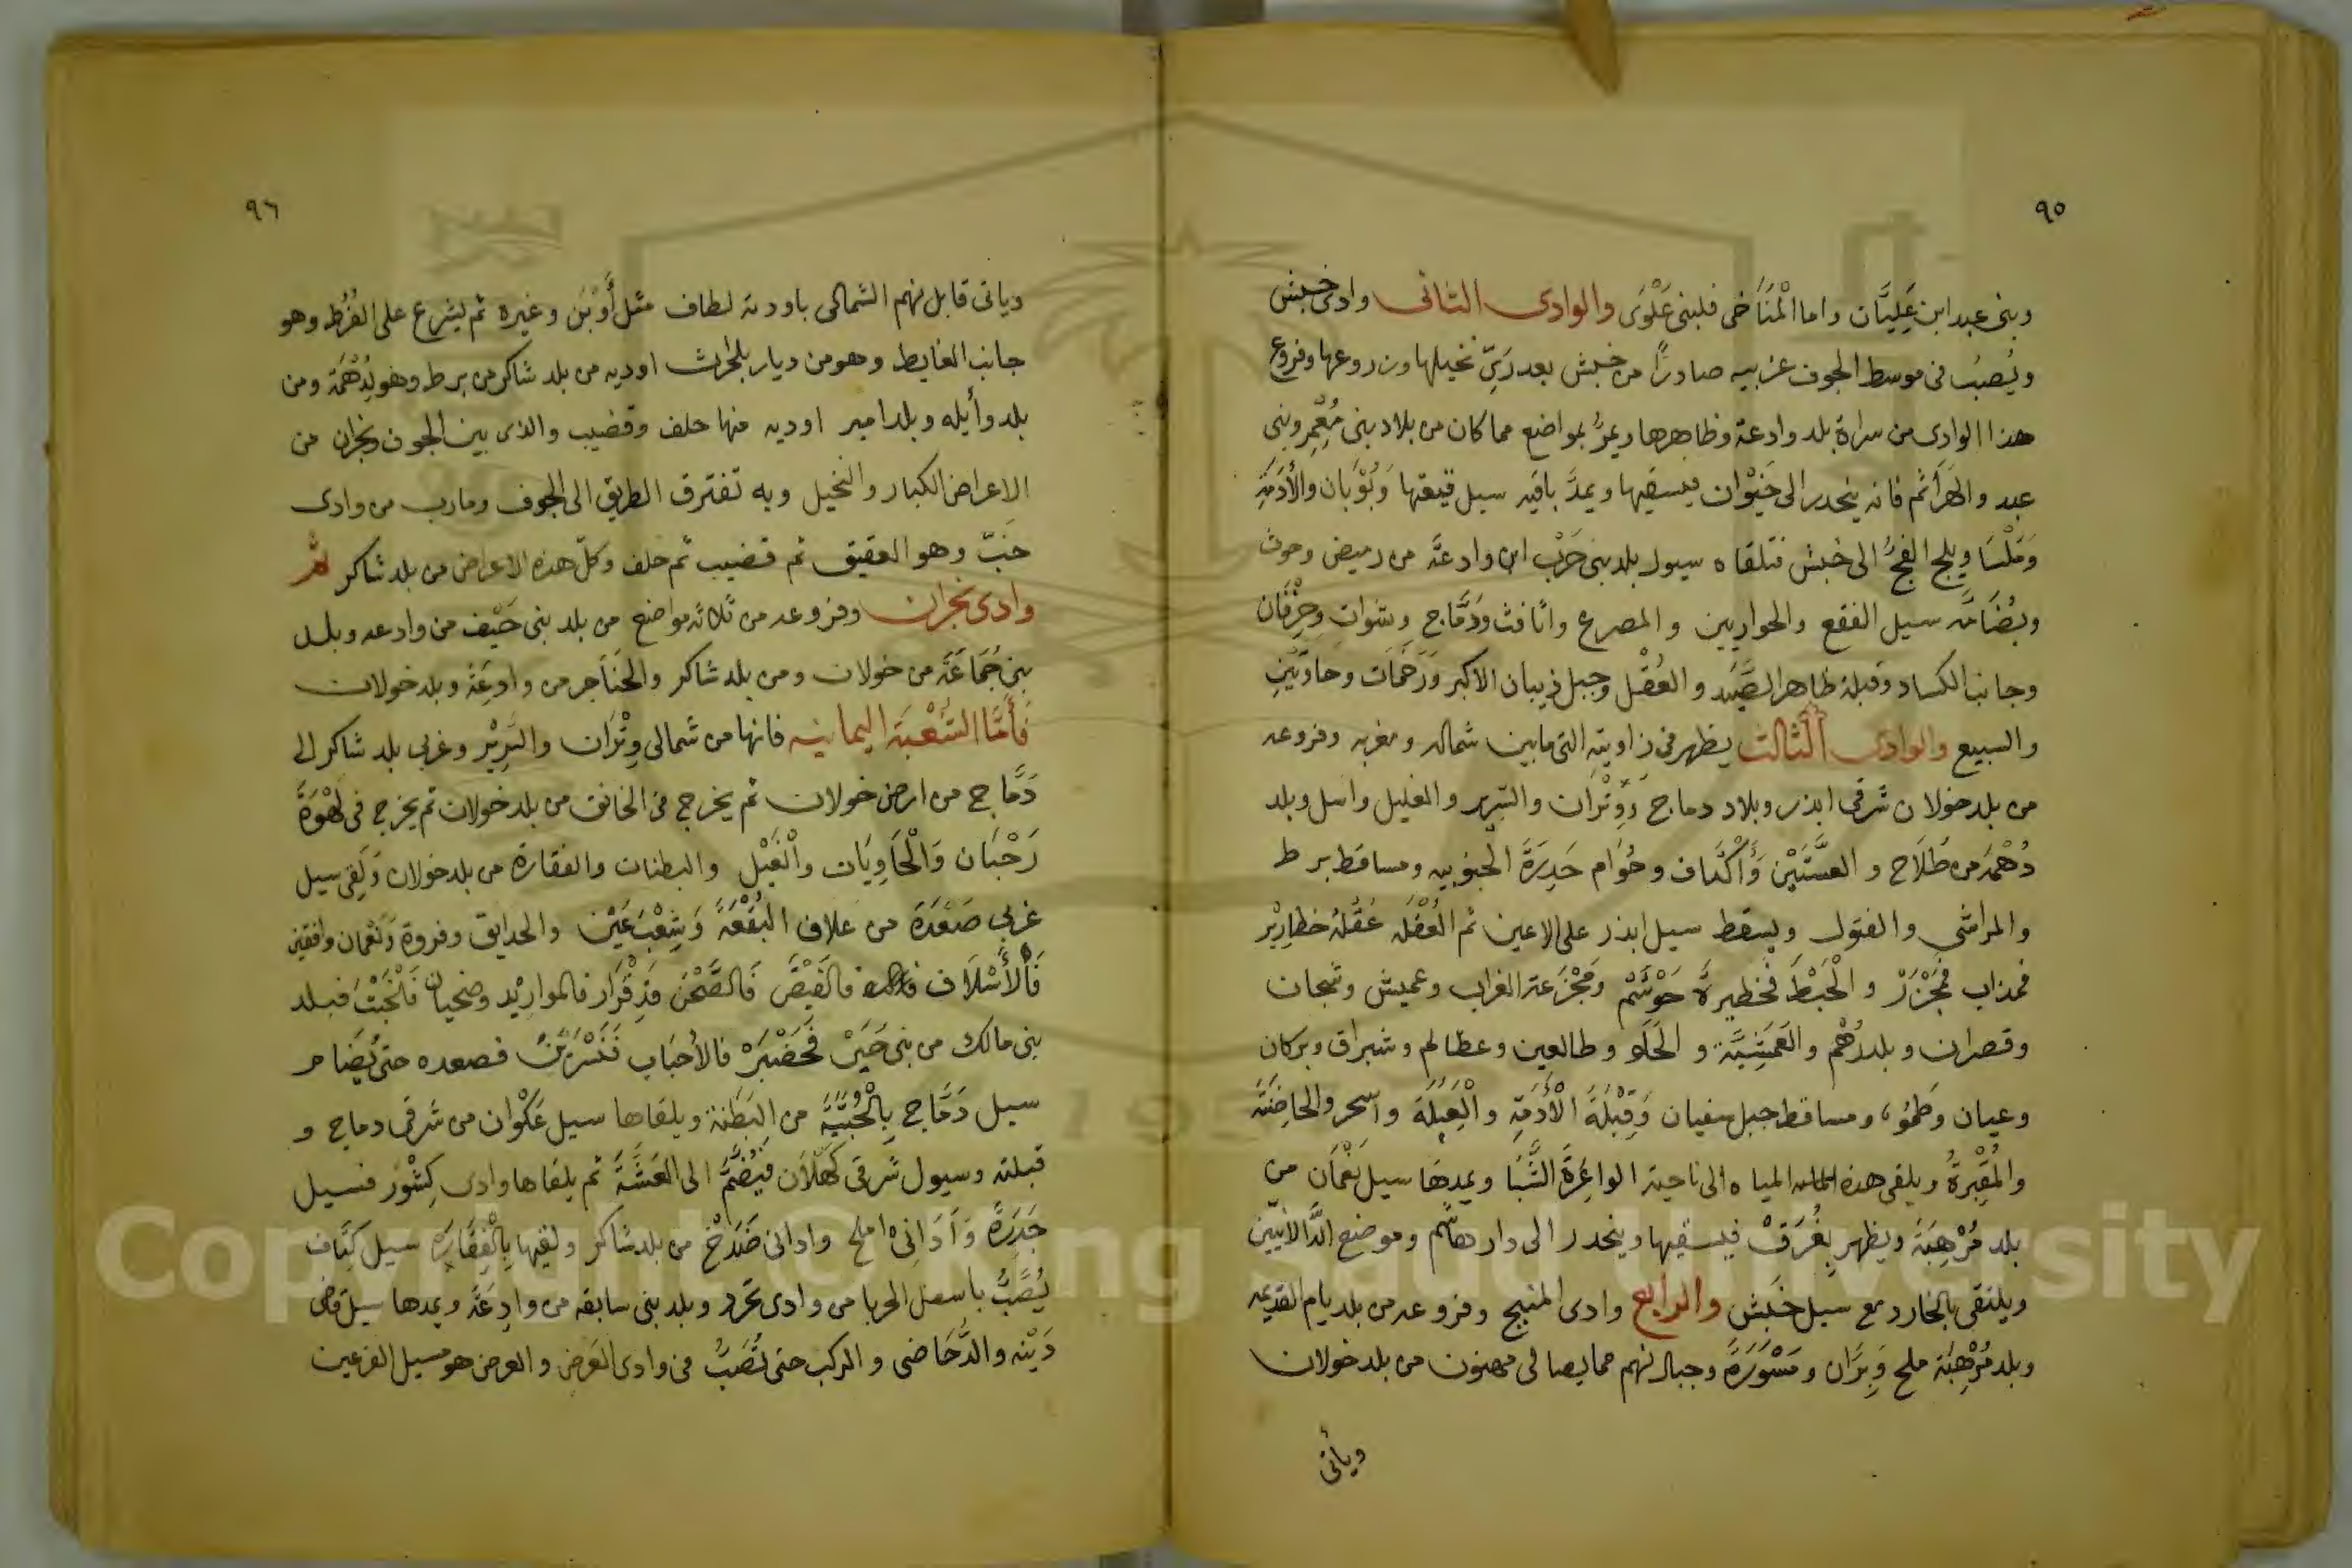 ٩٥
وبنى عبد ابن عَلِيَّان واما الْمَنَاَخى فلبنى عَلْوَى والوادى الثانى وادى خبش
ويُصبُ فى موسط الجوف غربيه صادرًا من خبش بعد رَىّ نخيلها وزروعها وفروع
هذا الوادى من سراة بلد وادعة وظاهرها ويمرُّ بمواضع مما كان من بلاد بنى مُعْمِر وبنى
عبد والهَرَاثم فانه ينحدر الى خَيْوان فيسقيها ويمدَّ باقيه سيل قيعتها وَبُوْبَان والأَدَمَةِ
وَمَلْسَا ويلج الفجُّ الى خبش فتلقاه سيول بلد بنى حَرْب ابن وادعَة من رميض وحوث
وبُضَامَّه سيل الفقع والحواريين والمصرع واثافت وَدَمَّاج وشَوات وَخِرْفَان
وجانب الكساد وقبلة ظاهر الصَّيَد والعُقْل وجبل ذيبان الاكبر وَرَخَمَات وحاوَتَيْنِ
والسبيع والوادى الثالث يظهر فى زاويته التى مابين شماله ومغربه وفروعه
من بلد خولان شرقى ابذر وبلاد دماج وَوِتْرَان والسَّرِير والغليل واسل وبلد
دُهْمَة من طُلَاح و العسَّتَيْن وَأَكْتَاف وحُوَام حَدِرَةَ الجنوبيه ومساقط برط
والمراشى والفتول ويسقط سيل ابذر على الاعين ثم الُعُقْلَه عُقْلَةُ خظارِيْر
فمذاب فَمَجْزَرْ و الْخَبْطَ فخظيرة حَوْشَم ومَجْزَعة الغراب وعميش وشجان
وقصران وبلد رُهْم والعَمَشِيَّة و الحَلَو وطالعين وعظالم وشبراق وبركان
وعيان وطمُوء ومساقط جبل سفيان وَقِبْلَةَ الْأَدَمَةِ والْعِبْلَة واسحر والحاضَنَة
والمُقْبِرةُ ويلقى هذه المياه الى ناحية الواغِرَةِ الشَّبَا ويمدهَا سيل نَعْمَان من
بلد مُرْهِبَة ويظهر بِغُرَقْ فيسقيها وينحدر الى دار هاشم وموضع الدَّالانيّين
ويلتقى بالخارد مع سيل خَبَش والرابع وادى المنبج وفروعه من بلد يام القديمه
وبلد مُرْهِبَة ملح وَبِرَّان ومَسْوَرَةً وجبال نهم مما يصالى مهنون من بلد خولان
وياتى
٩٦
وياتى قابل نهم الشمالى باودية لطاف مثل أَوْبَن وغيره ثم يشرع على الفُرُط وهو
جانب الغايط وهو من ديار بلحارث اوديه من بلد شاكر من برط وهو لِدُهْمَة ومن
بلد وأيله وبلد امير اوديه منها حلف وقضيب والذى بين الجوف ونجران من
الاعراض الكبار والنخيل وبه تفترق الطريق الى الجوف ومارب من وادى
خَبّ وهو العقيق ثم قضيب ثم حلف وكلّ هذه الاعراض من بلد شاكر ثم
وادى نجران وفروعه من ثلاثه مواضع من بلد بنى حَيْف من وادعه وبلد
بنى جُمَاعَة من خولان ومن بلد شاكر والحَنَاَجر من وادِعَة وبلد خولان
فَأَمَّا الشُّعْبَة اليمانيه فانها من شمالى وِتْرَان والسَّرِيْر وغربى بلد شاكر الى
دَمَّاج من ارض خولان ثم يخرج فى الخانق من بلد خولان ثم يخرج فى لَهْوَةَ
رَحْبَان وَالْحَاَوِيَات واَلْغَيْل والبطنات والفقارة من بلد خولان ولَقِى سيل
غربى صَعْدَة من عَلاف البُقْعَةَ وَشِعْبَ عَيْن والحدايق وفروة وَنَعْمان وافقين
فَالأَسْلَاف فالقَيْضِ فَالصَّحْن فذِفَرَار فالموارِيْد وضحيان فَالْخَبْتَ فبلد
بنى مالك من بنى حَيَرْ فَحَضْبَرَه فالأحْبَاب فَنَسْرَيْنَ فصعده حتى يُضَام
سيل دَمَّاج بِالْخَبْتَيَّةِ من البَطَنة ويلقاها سيل عَكْوان من شرقى دماج و
قبلته وسيول شرقى كَهْلَان فَيُضَمَّ الى العَشَّةَ ثم يلقاها وادى كِشْوَر فسيل
جَدَرَةَ وَ أَدَانِىْ املح وادانى ضَدَحْ من بلد شاكر ولقيها بِالْفَقَارَة سيل كِتَاف
يُصَّبُّ باسفل الحربا من وادى نحرد وبلد بنى سابقه من وادِعَة ويمدها سيل قاض
دَيْنه والدَّحَاضى والركب حتى تُصَبَّ فى وادى العَرض والعرض هو مسيل الفرعين